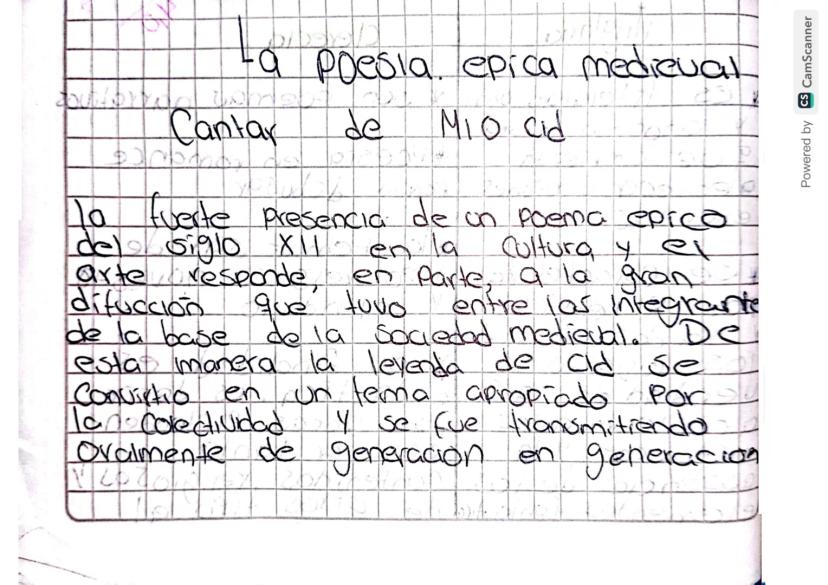 La poesia. epica medieval
Cantar de Mio Cid
la fuerte presencia de un poema epico
del siglo XII en la cultura y el
arte responde, en parte, a la gran
difucción que tuvo entre los integrante
de la base de la sociedad medieval. De
esta manera la leyenda de cid se
convirtio en un tema apropiado por
la colectividad y se fue transmitiendo
oralmente de generacion en generacion
Powered by CS CamScanner